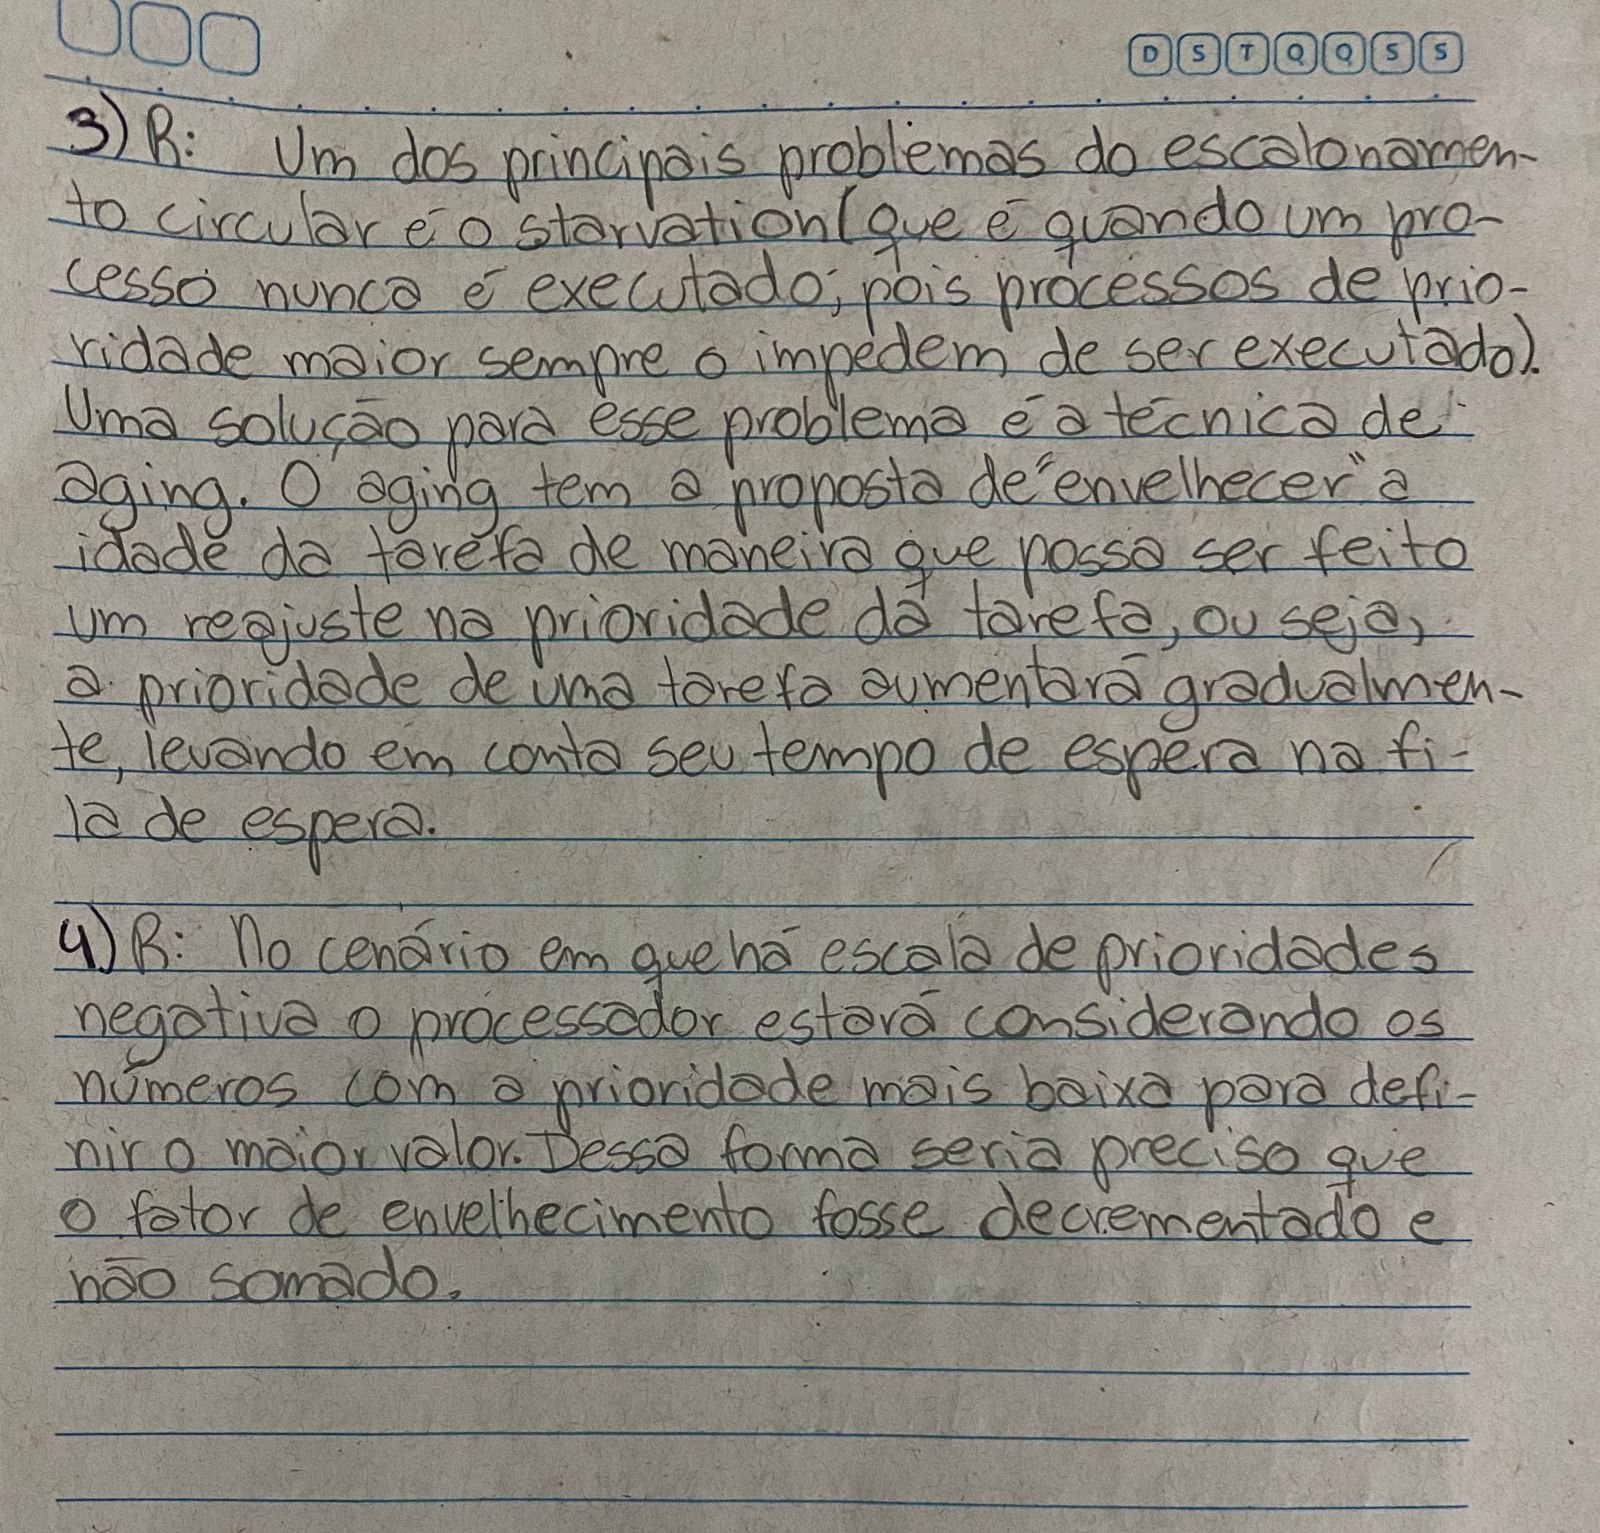 D S T Q Q S S
3) R: Um dos principais problemas do escalonamen-
to circular é o starvation (que é quando um pro-
cesso nunca é executado, pois processos de prio-
ridade maior sempre o impedem de ser executado).
Uma solução para esse problema é a técnica de
aging. O aging tem a proposta de "envelhecer" a
idade da tarefa de maneira que possa ser feito
um reajuste na prioridade da tarefa, ou seja,
a prioridade de uma tarefa aumentará gradualmen-
te, levando em conta seu tempo de espera na fi-
la de espera.
4) R: No cenário em que há escala de prioridades
negativa o processador estará considerando os
números com a prioridade mais baixa para defi-
nir o maior valor. Dessa forma seria preciso que
o fator de envelhecimento fosse decrementado e
não somado.